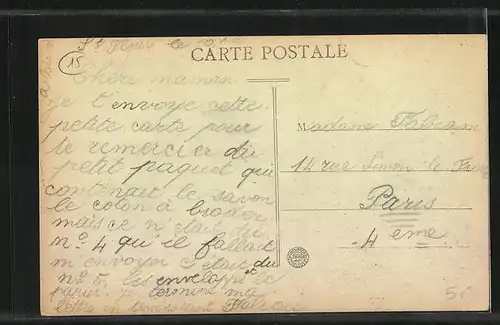 15
St Flour le
CARTE POSTALE
Chère maman
je t'envoye cette
petite carte pour
te remercier du
petit paquet qui
contenait le savon
le coton à broder
mais ce n'était du
n° 4 qu'il fallait
m'envoyer c'était du
n° 5. les enveloppes et
papier. je termine ma
lettre en
Madame
14 rue Simon le Franc
Paris
4 eme